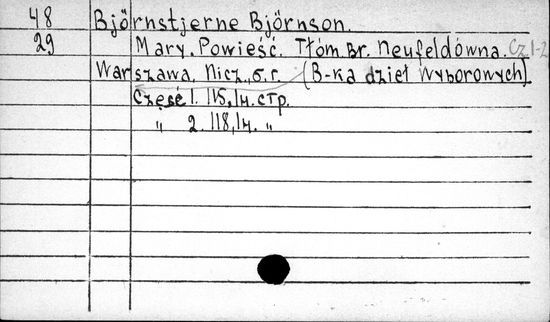 48 Björnstjerne Björnson.
29 Mary. Powieść. Tłóm. Br. Neufeldówna. Cz. 1-2
Warszawa, Nicz, б.г. (B-ka dzieł Wyborowych).
Część 1. 115, IН. стр.
„ 2. 118, IН. „